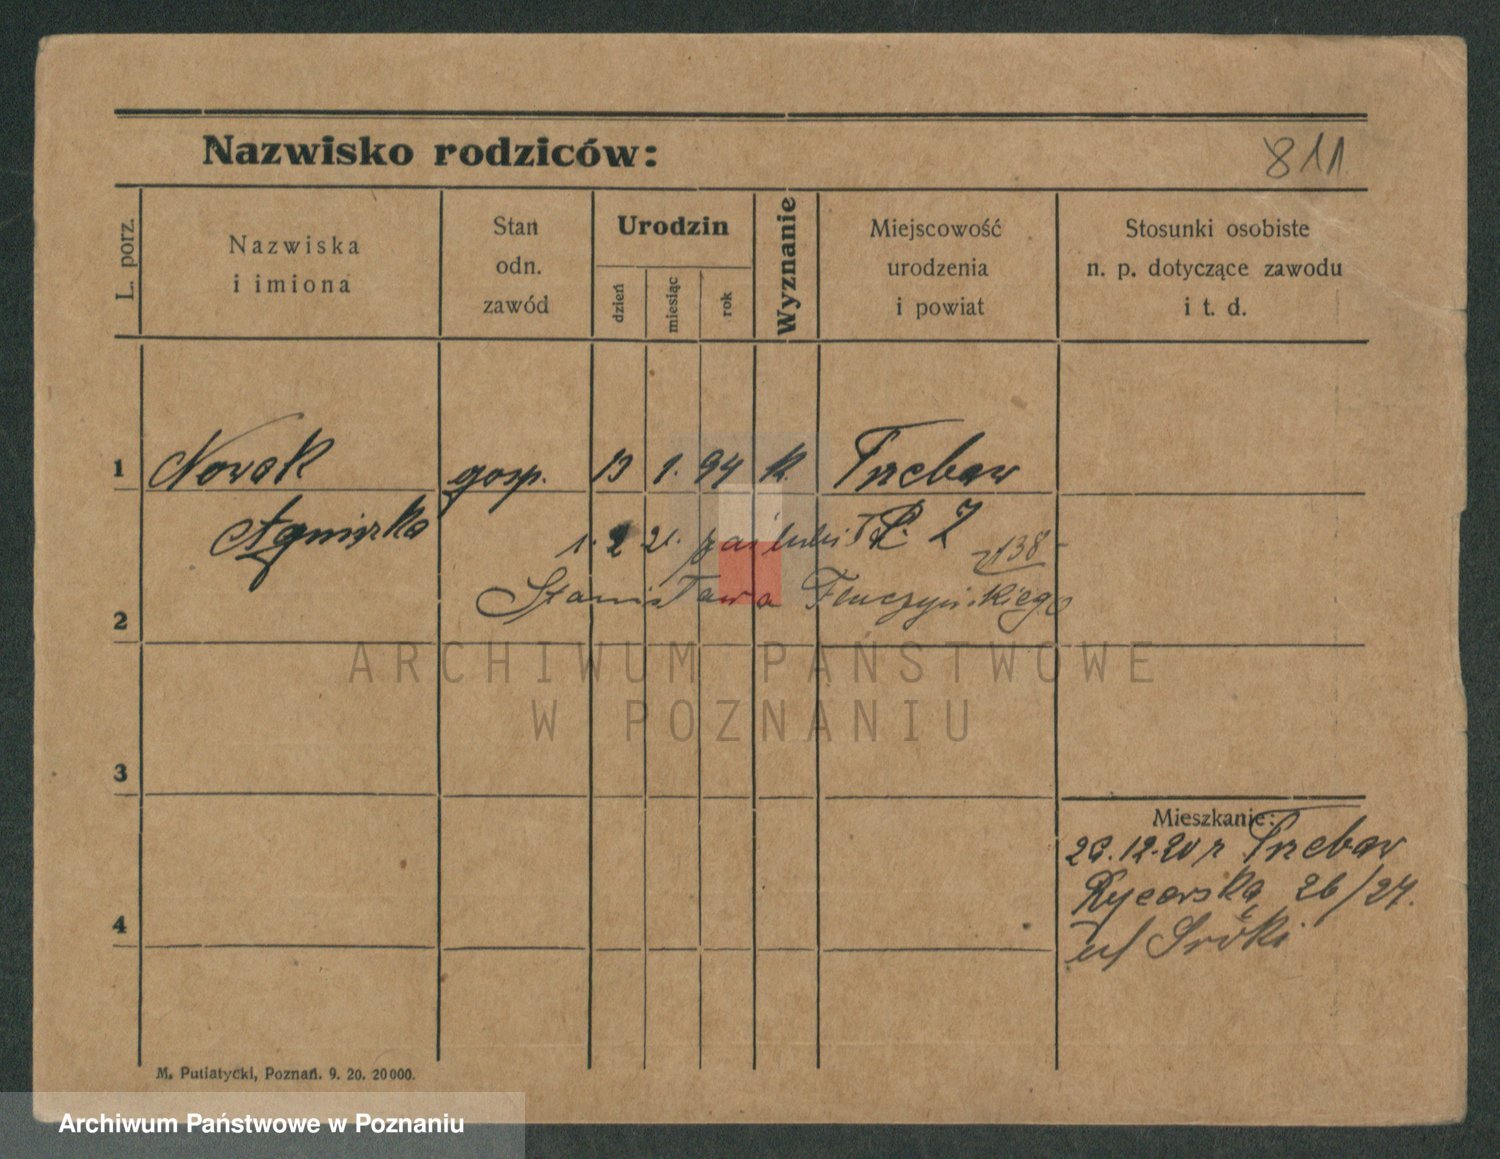 Nazwisko rodziców:
811
L. porz.
Nazwiska
i imiona
Stan
odn.
zawód
Urodzin
dzień
miesiąc
rok
Wyznanie
Miejscowość
urodzenia
i powiat
Stosunki osobiste
n. p. dotyczące zawodu
i t. d.
1 Nowak gosp. 13 1. 94 k. Trzebaw
Agnieszka
1. 2 21. poślubi
138
2 Stanisława
ARCHIWUM PAŃSTWOWE
W POZNANIU
3
Mieszkanie:
12.20 r Trzebaw
Rycerska 26/27.
4
Sróki
M. Putiatycki, Poznań. 9. 20. 20000.
Archiwum Państwowe w Poznaniu